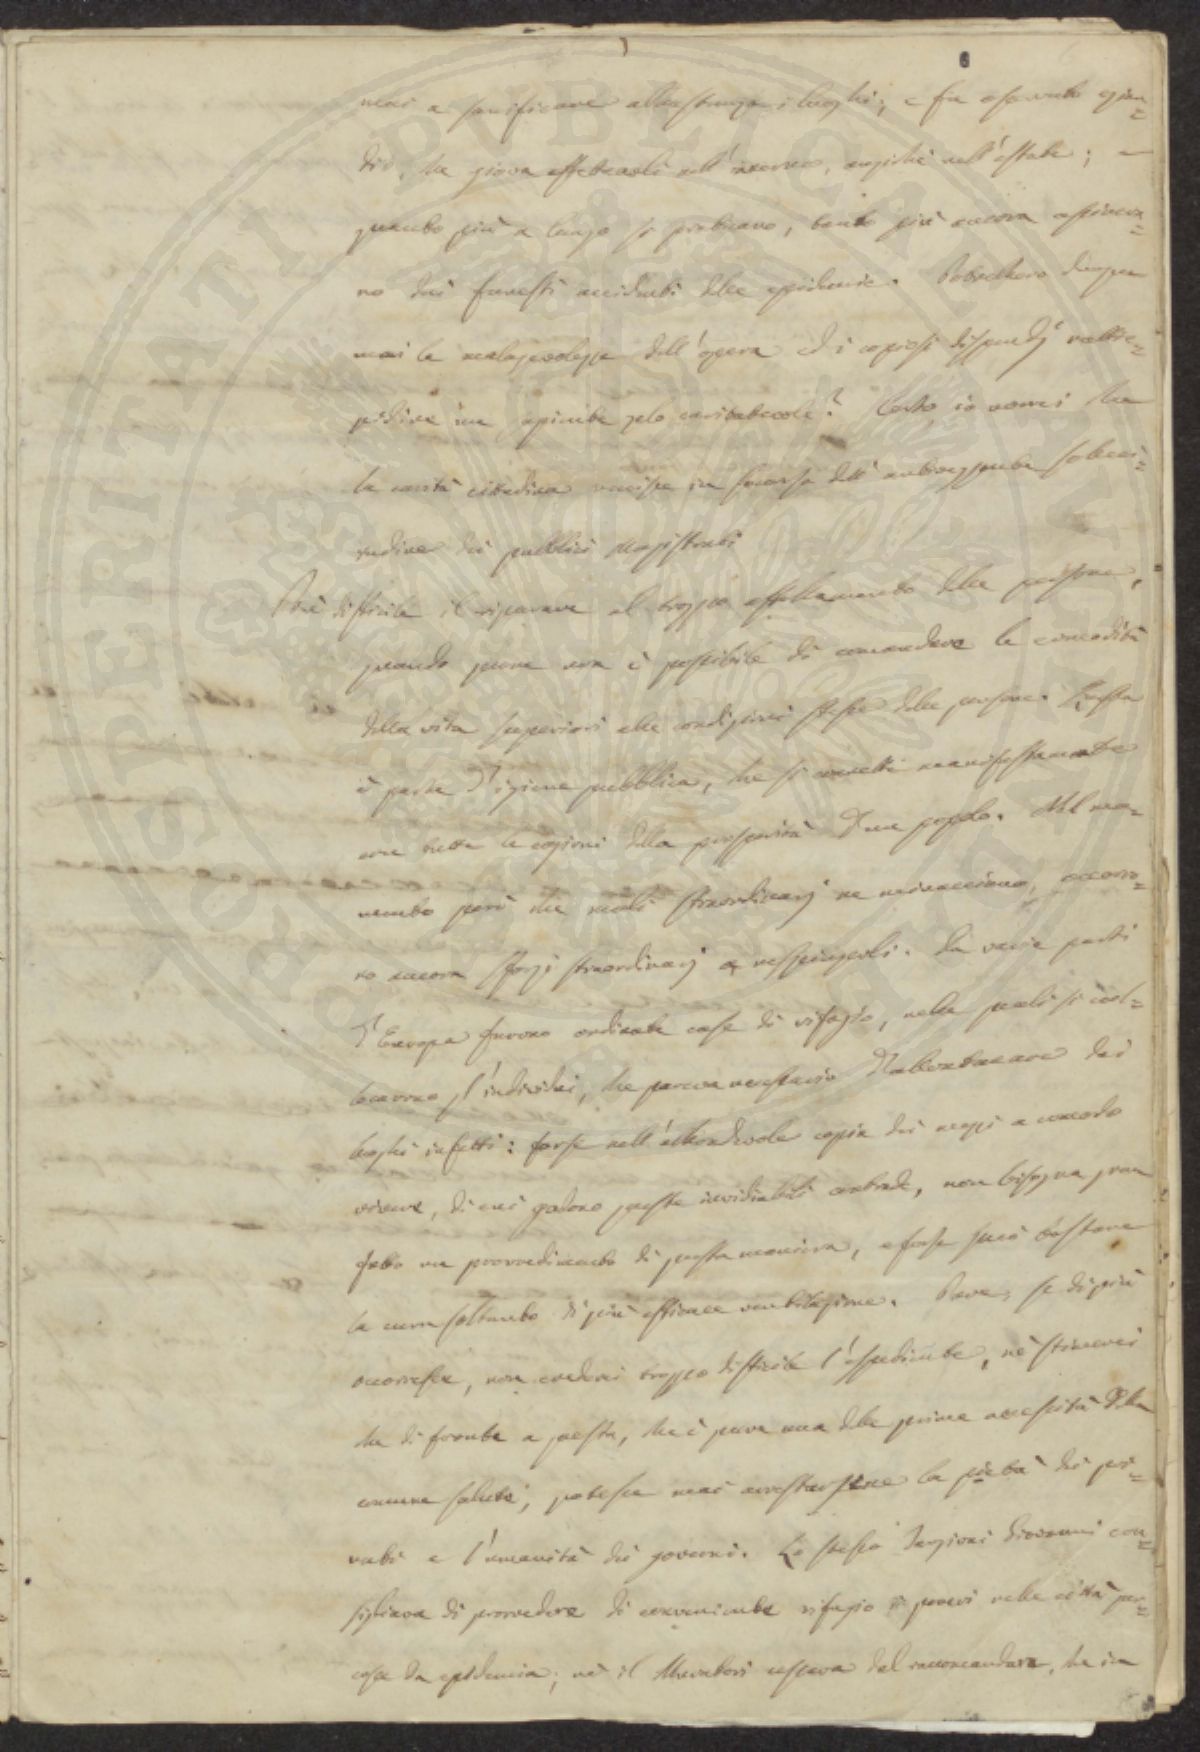 6
mai a sanificare all'astanza i luoghi; e fu osservato ezian=
dio, che giova effettuarli nell'inverno, anziché nell'estate; —
quanto più a lungo si protraeno, tanto più ancora
no dai funesti accidenti delle epidemie. Potrebbero dunque
mai la malagevolezza dell'opera ed i copiosi dispendj rattie=
pidire un zelo caritatevole? Certo, io vorrei che
la carità cittadina venisse in soccorso dell' solleci=
tudine dei pubblici Magistrati
Più difficile il riparare al troppo affollamento delle persone,
quando pure non è possibile di comandare le comodità
della vita superiori alle condizioni stesse delle persone. Questa
è parte d'igiene pubblica, che si connette manifestamente
con tutte le cagioni della prosperità d'un popolo. Nel mo=
mento però che mali straordinarj ne minacciano, occorro=
no ancora sforzi straordinarj a respingerli. In varie parti
d'Europa furono ordinate case di rifugio, nelle quali si col=
locarono gl'individui, che pareva necessario d'allontanare dai
luoghi infetti: forse nell'abbondevole copia dei mezzi a comodo
vivere, di cui godono queste invidiabili contrade, non bisogna gran
fatto un provvedimento di questa maniera, e forse può bastare
la cura soltanto di più efficace ventilazione. Pure, se di più
occorresse, non crederei troppo difficile l'espediente, nè stimerei
che di fronte a questa, che è pure una delle prime necessità della
comune salute, potesse mai arrestarsene la pietà dei pri=
vati e l'umanità dei governi. Lo stesso Giovanni con=
sigliava di provvedere di conveniente rifugio i poveri nelle città per=
cosse da epidemia; nè il Muratori cessava dal raccomandare, che in